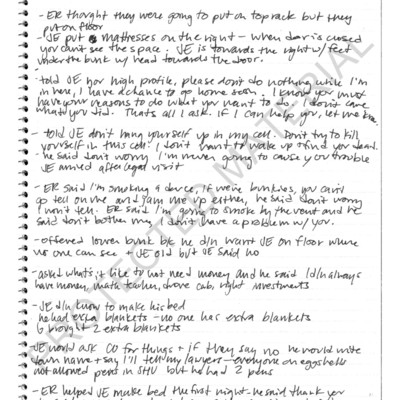 - ER thought they were going to put on top rack but they
put on floor
- JE put mattresses on the right - when door is closed
you can't see the space. JE is towards the right w/ feet
under the bunk w/ head towards the door.
- told JE yor high profile, please don't do nothing while I'm
in here, I have a chance to go home soon. I know you must
have your reasons to do what you want to do. I don't care
what you did. Thats all I ask. if I can help you, let me know.
- told JE don't hang yourself up in my cell. Don't try to kill
yourself in this cell. I don't want to wake up & find you dead.
- he said don't worry I'm never going to cause you trouble
JE arrived after legal visit
- ER said I'm smoking & dance, if we're bunkies, you can't
go tell on me and jam me up either, he said don't worry
I won't tell. ER said I'm going to smoke by the vent and he
said don't bother me, I don't have a problem w/ you.
- offered lower bunk b/c he d/n want JE on floor where
no one can see + JE old but JE said no
- asked what's it like to not need money and he said I d/n always
have money, math teacher, drove cab, right investments
- JE d/n know to make his bed
he had extra blankets - no one has extra blankets
brought 2 extra blankets
JE would ask CO for things + if they say no he would write
down name + say I'll tell my lawyers - everyone on eggshells
not allowed pens in SHU but he had 2 pens
- ER helped JE make bed the first night - he said thank you
PROTECTED MATERIAL